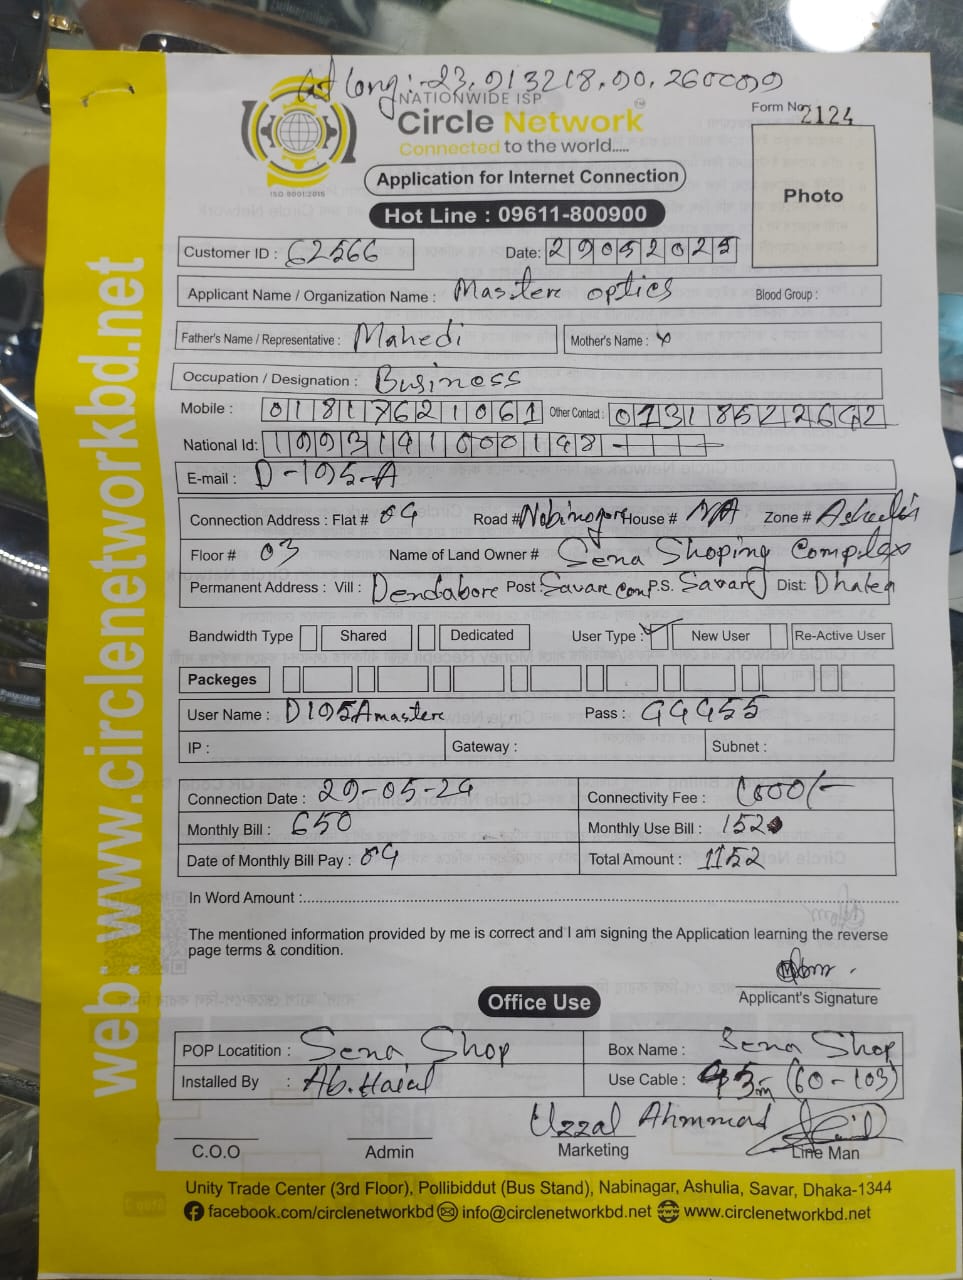 Long:-23.913218.90.260009
NATIONWIDE ISP
Circle Network
Connected to the world.....
ISO 9001:2015
Form No 2124
Application for Internet Connection
Photo
Hot Line : 09611-800900
Customer ID : 62566 Date: 29052025
Applicant Name / Organization Name : Mastere optics Blood Group :
Father's Name / Representative : Mahedi Mother's Name : x
Occupation / Designation : Business
Mobile : 01817621061 Other Contact :
National Id:
E-mail : D-195-A
Connection Address : Flat # 04 Road # Nobinogore House # N/A Zone #
Floor # 03 Name of Land Owner # Sena Shoping Complex
Permanent Address : Vill : Dendabore Post : Savare P.S. Savare Dist: Dhaka
Bandwidth Type Shared Dedicated User Type : New User Re-Active User
Packeges
User Name : D195Amastere Pass : 44455
IP : Gateway : Subnet :
Connection Date : 29-05-24 Connectivity Fee : 1000/-
Monthly Bill : 650 Monthly Use Bill : 152
Date of Monthly Bill Pay : 04 Total Amount : 1152
In Word Amount :
The mentioned information provided by me is correct and I am signing the Application learning the reverse
page terms & condition.
Applicant's Signature
Office Use
POP Locatition : Sena Shop Box Name : Sena Shop
Installed By : Ab. Halal Use Cable : 43m (60-103)
Uzzal Ahmmad
C.O.O Admin Marketing Line Man
Unity Trade Center (3rd Floor), Pollibiddut (Bus Stand), Nabinagar, Ashulia, Savar, Dhaka-1344
facebook.com/circlenetworkbd info@circlenetworkbd.net www.circlenetworkbd.net
web: www.circlenetworkbd.net